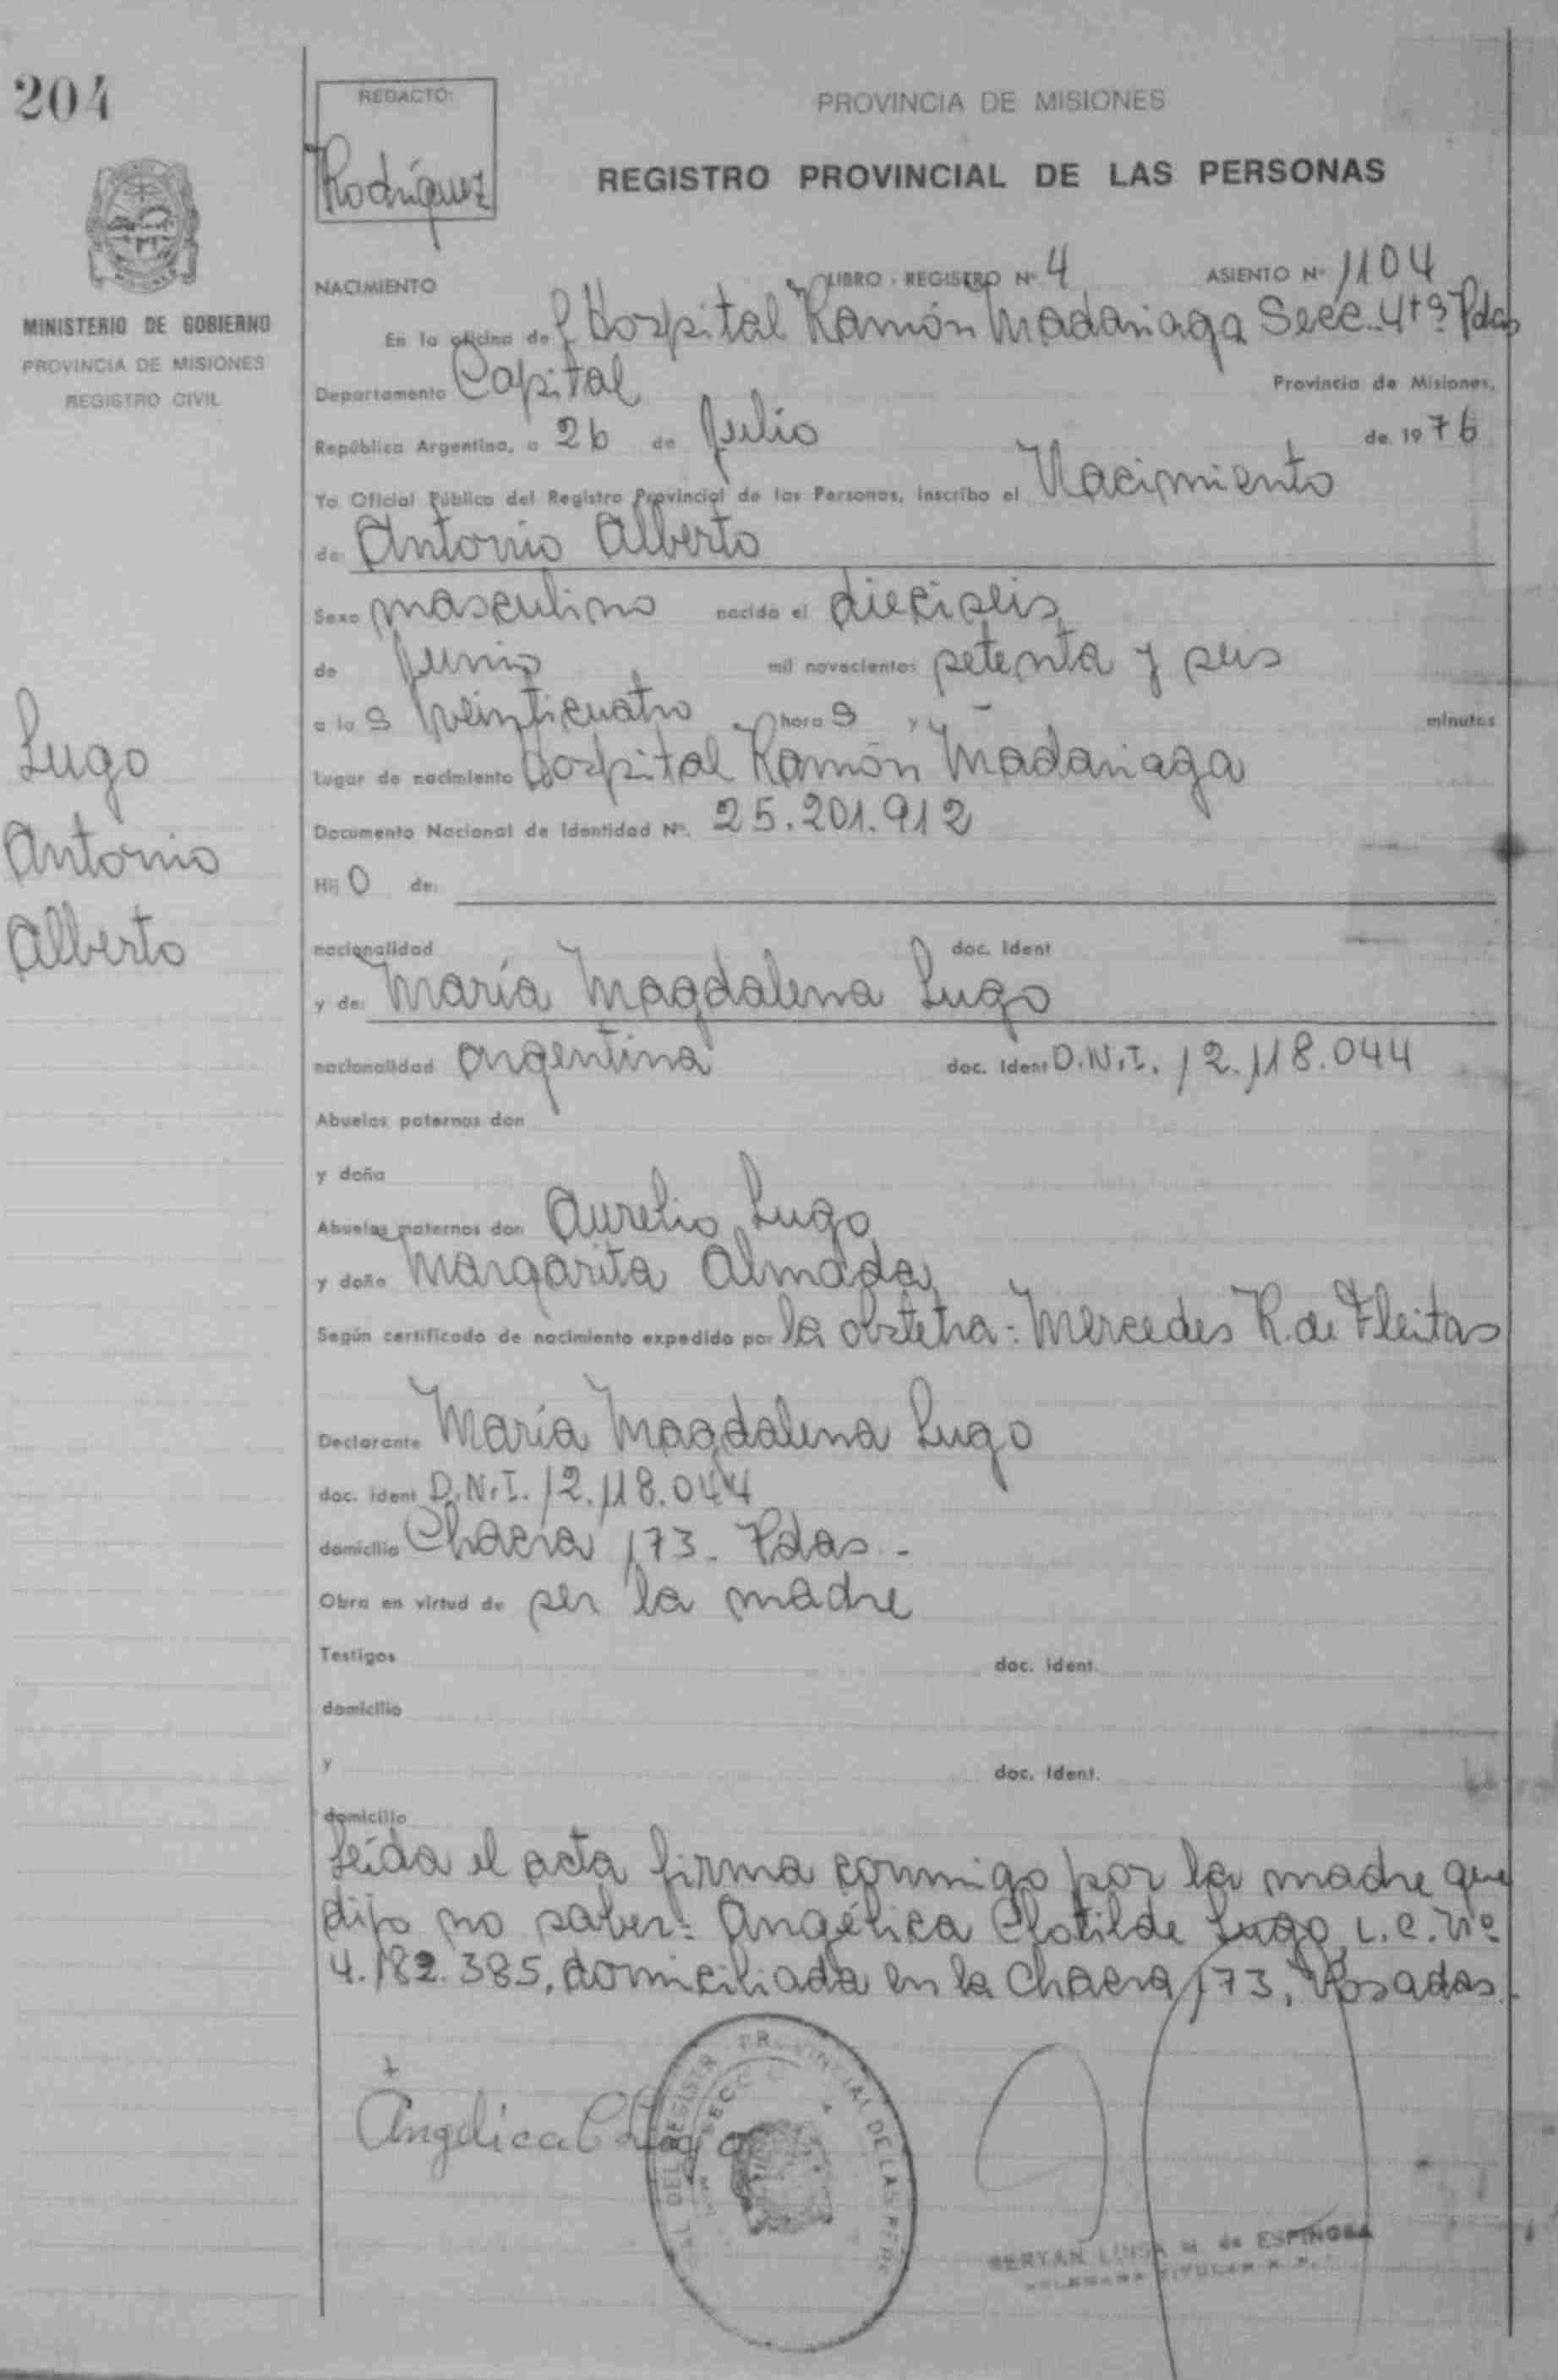 204
REDACTO:
Rodríguez
PROVINCIA DE MISIONES
REGISTRO PROVINCIAL DE LAS PERSONAS
MINISTERIO DE GOBIERNO
PROVINCIA DE MISIONES
REGISTRO CIVIL
NACIMIENTO LIBRO - REGISTRO Nº 4 ASIENTO Nº 1104
En la oficina del Hospital Ramón Madariaga Secc. 4tª Pdas
Departamento Capital Provincia de Misiones,
República Argentina, a 26 de Julio de 1976
Yo Oficial Público del Registro Provincial de las Personas, inscribo el Nacimiento
de Antonio Alberto
Sexo masculino nacido el dieciseis
de Junio mil novecientos setenta y seis
a las veinticuatro horas y - minutos
Lugar de nacimiento Hospital Ramón Madariaga
Documento Nacional de Identidad Nº. 25.201.912
Hijo de:
nacionalidad doc. ident
y de: María Magdalena Lugo
nacionalidad argentina doc. ident D.N.I. 12.118.044
Abuelos paternos don
y doña
Abuelos maternos don Aurelio Lugo
y doña Margarita Almada
Según certificado de nacimiento expedido por la obstetra: Mercedes R. de Fleitas
Declarante María Magdalena Lugo
doc. ident D.N.I. 12.118.044
domicilio Chacra 173. Pdas.-
Obra en virtud de ser la madre
Testigos doc. ident.
domicilio
y doc. ident.
domicilio
Leída el acta firma conmigo por la madre que
dijo no saber: Angélica Clotilde Lugo L.C. Nº
4.182.385, domiciliada en la Chacra 173, Posadas.
Lugo
Antonio
Alberto
Angelica C Lugo
REGISTR PROVINCIAL DE LAS PERS
SECC
LUISA M. de ESPINOSA
TITULAR